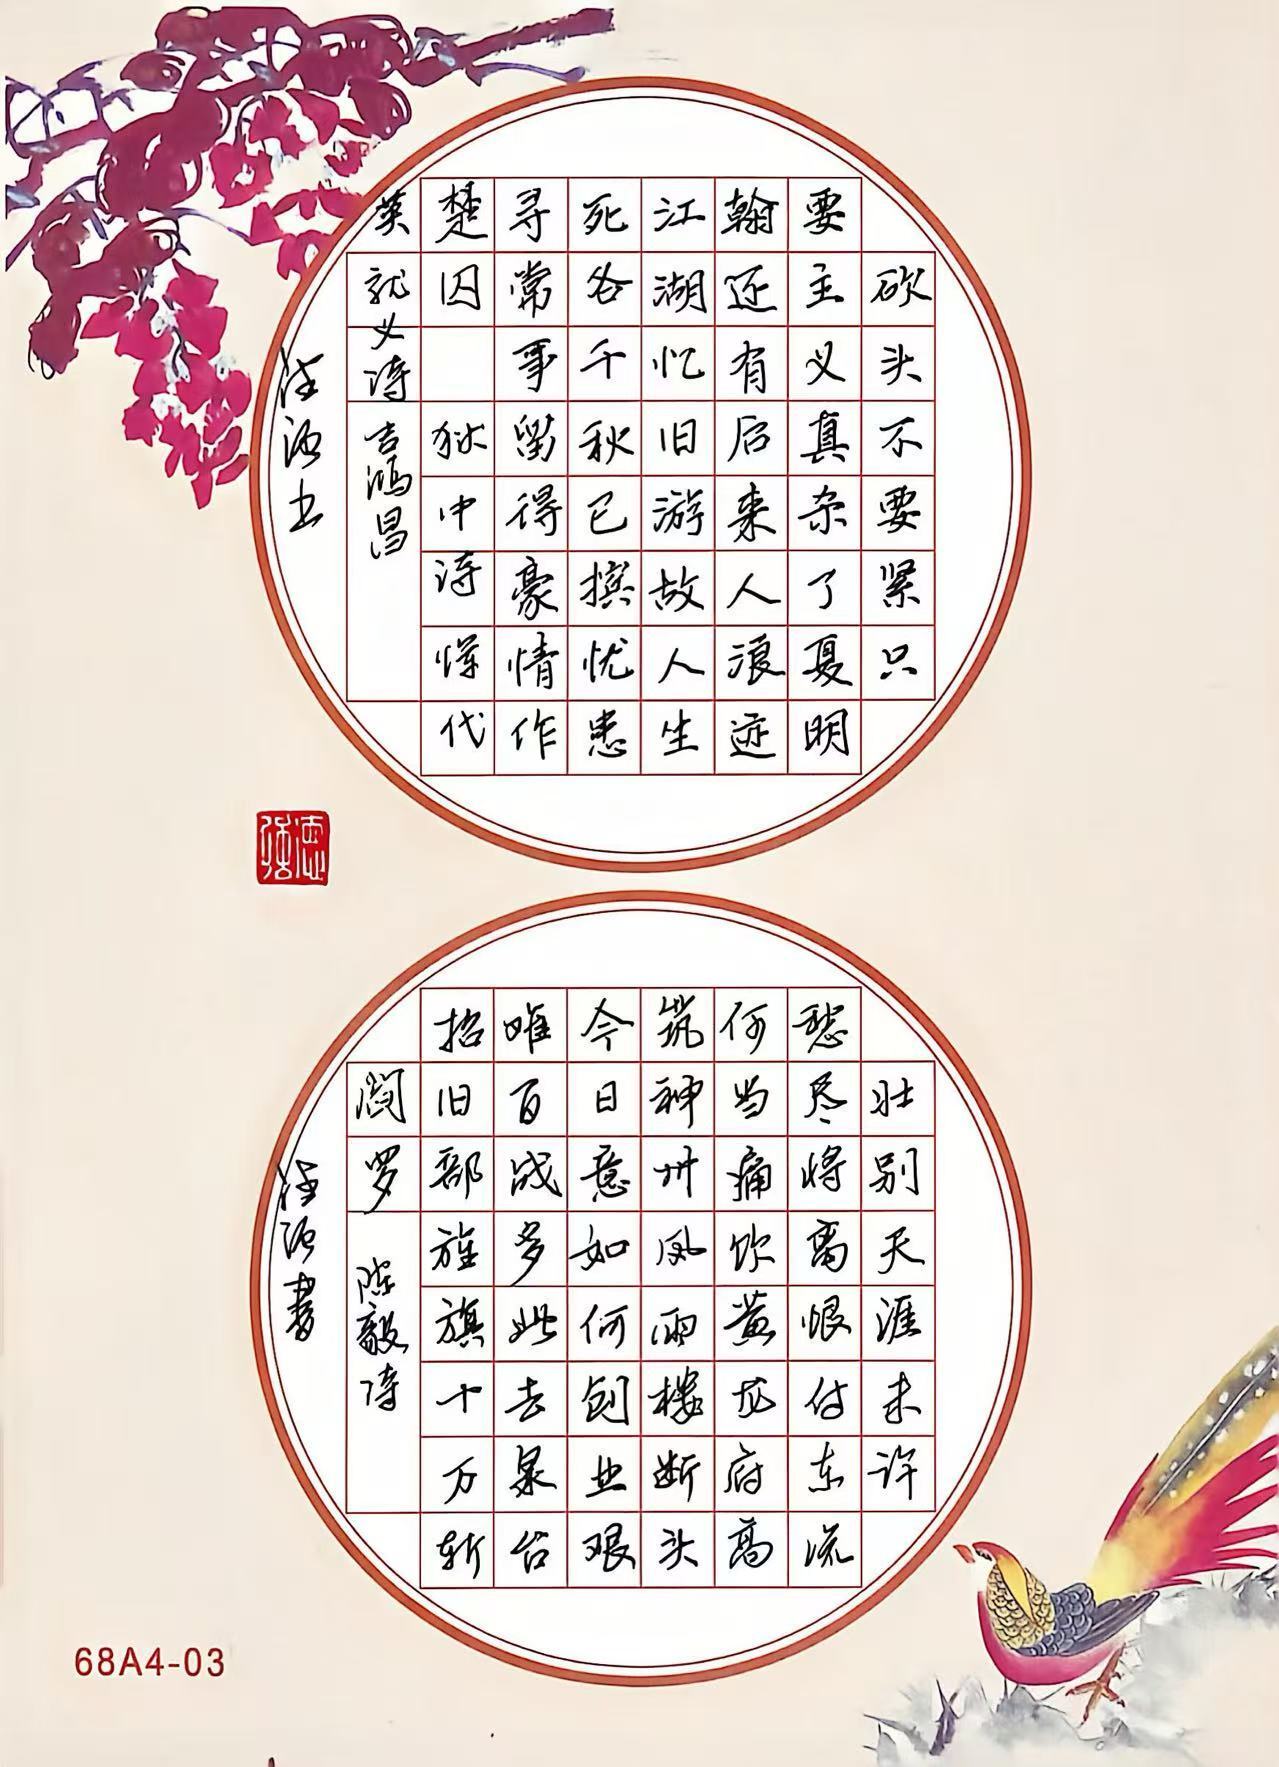 砍头不要紧只
要主义真杀了夏明
翰还有后来人浪迹
江湖忆旧游故人生
死各千秋已摈忧患
寻常事留得豪情作
楚囚 狱中诗恽代
英 就义诗 吉鸿昌
书
壮别天涯未许
愁尽将离恨付东流
何当痛饮黄龙府高
筑神州风雨楼断头
今日意如何创业艰
唯百战多此去泉台
招旧部旌旗十万斩
阎罗 陈毅诗
書
68A4-03